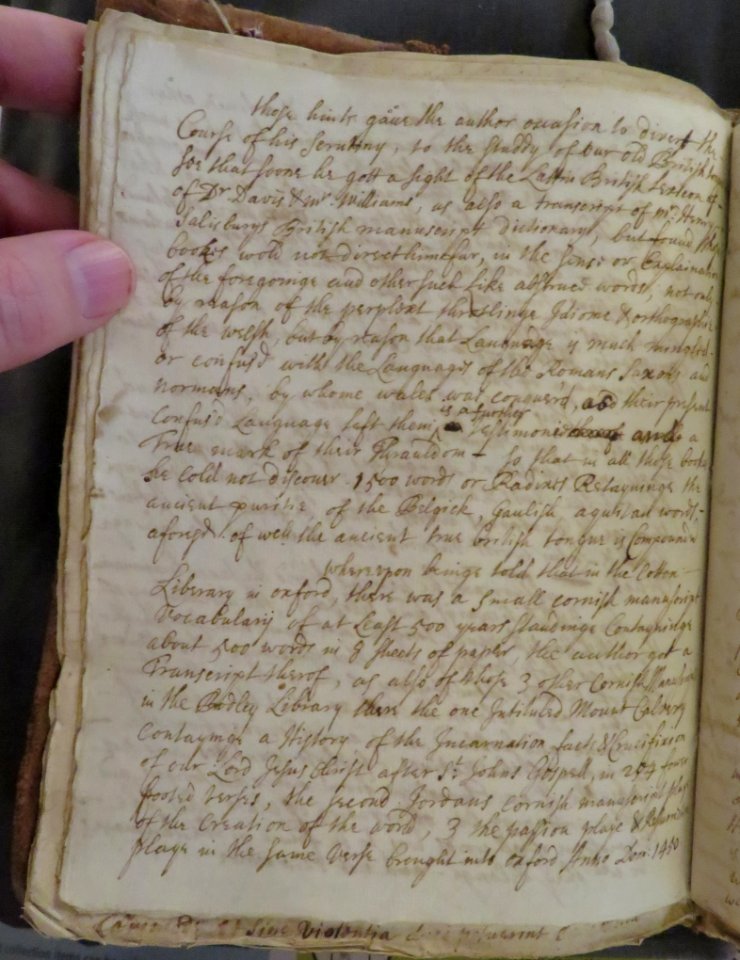 those hints gave the author occasion to divert the
Course of his scrutiny, to the studdy of our old British
soe that soone he gott a sight of the Lattin British Lexicon
of Dr Davis & mr. Williams, as also a transcript of mr. Henry
Salisburys British manuscript dictionary, but found
bookes wold not direct him fur, in the sense or Explaination
of the foregoinge and other such like abstrued words, not only
by reason of the perplext Idiome & orthographie
of the welsh, but by reason that Language is much mingled
or confus'd with the Languages of the Romans Saxons and
normans, by whome wales was conquer'd, and their present
Confus'd Language left them, is a further testimonie and a
True mark of their Thrauldom so that in all those books
he cold not discover 1500 words or Radixes Retayninge the
ancient puritie, of the Belgick, gaulish aquitan words,
aforesd. of wch the ancient true british tongue is Compounded
whereupon beinge told that in the Cotton
Library in oxford, there was a small cornish manuscript
Vocabulary of at Least 500 years standinge Contayninge
about 500 words in 8 sheets of paper, the author got a
Transcript therof, as also of those 3 other Cornish Manuscripts
in the Bodley Library there the one Intituled Mount Calvery
Contayninge a History of the Incarnation facts & Crucifixion
of our Lord Jesus Christ after St. Johns Gospell, in fower
footed verses, the second Jordans cornish manuscript
of the Creation of the world, 3 the passion playe &
playe in the same verse brought into oxford Anno Dom: 1450
Sine Violentia